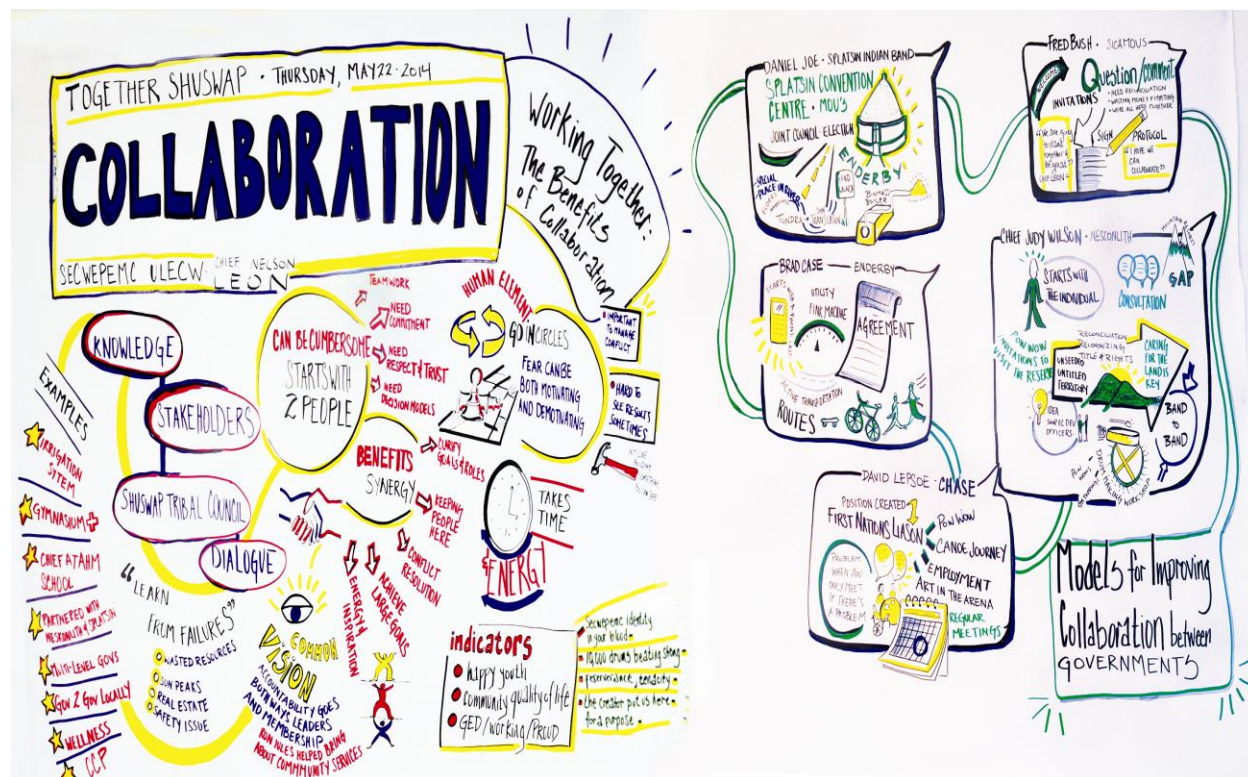 TOGETHER SHUSWAP · THURSDAY, MAY 22 - 2014
COLLABORATION
SECWEPEMC ULECW · CHIEF NELSON
LEON
Working Together:
The Benefits
of Collaboration
KNOWLEDGE
STAKEHOLDERS
SHUSWAP TRIBAL COUNCIL
DIALOGUE
EXAMPLES
IRRIGATION
SITEM
GYMNASIUM
CHIEF ATAHM
SCHOOL
PARTNERED WITH
NESKONLITH & SPLATSIN
MULTI-LEVEL GOVS
GOV 2 GOV LOCALLY
WELLNESS
CCP
"LEARN
FROM FAILURES"
WASTED RESOURCES
SUN PEAKS
REAL ESTATE
SAFETY ISSUE
CAN BE CUMBERSOME
STARTS WITH
2 PEOPLE
TEAMWORK
NEED
COMMITMENT
NEED
RESPECT & TRUST
NEED
DECISION MODELS
CLARIFY
GOALS & ROLES
BENEFITS
SYNERGY
KEEPING
PEOPLE
HERE
CONFLICT
RESOLUTION
ACHIEVE
LARGE GOALS
ENERGY &
INSPIRATION
COMMON
VISION
ACCOUNTABILITY GOES
BOTH WAYS LEADERS
AND MEMBERSHIP
RON JULES HELPED BRING
ABOUT COMMMUNITY SERVICES
HUMAN ELEMENT:
GO IN CIRCLES
FEAR CAN BE
BOTH MOTIVATING
AND DEMOTIVATING
IMPORTANT
TO MANAGE
CONFLICT
HARD TO
SEE RESULTS
SOMETIMES
TAKES
TIME
& ENERGY
indicators
happy youth
community quality of life
GED / working / PROUD
Secwepemc identity
in your blood
10,000 drums beating strong
perserverance, tenacity
the creator put us here
for a purpose
DANIEL JOE - SPLATSIN INDIAN BAND
SPLATSIN CONVENTION
CENTRE · MOU'S
JOINT COUNCIL · ELECTION
ENDERBY
SPECIAL
PLACE IN RIVER
ELDERS
AND
LAUNCH
BIOMASS
BOILER
FRED BUSH · SICAMOUS
WELCOME
Question/comment
INVITATIONS
NEED RECONCILIATION
WASTING MONEY FIGHTING
WE'RE ALL HERE TOGETHER
SIGN
PROTOCOL
CHIEF LEON
"I HOPE WE
CAN
COLLABORATE"
BRAD CASE
ENDERBY
STARTS WITH
UTILITY
FINE MACHINE
AGREEMENT
ACTIVE TRANSPORTATION
ROUTES
CHIEF JUDY WILSON · NESCONLITH
STARTS WITH
THE INDIVIDUAL
CONSULTATION
GAP
POW WOW
INVITATIONS TO
VISIT THE RESERVE
RECONCILIATION
RECOGNIZING
TITLE & RIGHTS
UNSEEDED
UNTITLED
TERRITORY
CARING
FOR THE
LAND IS
KEY
IDEA
OFFICERS
BAND
TO
BAND
DRUM MAKING WORKSHOP
DAVID LEPSOE · CHASE
POSITION CREATED
FIRST NATIONS LIASON
POW WOW
CANOE JOURNEY
EMPLOYMENT
ART IN THE ARENA
REGULAR
MEETINGS
PROBLEM
WHEN YOU
ONLY MEET
IF THERE'S
A PROBLEM
Models for Improving
Collaboration between
GOVERNMENTS